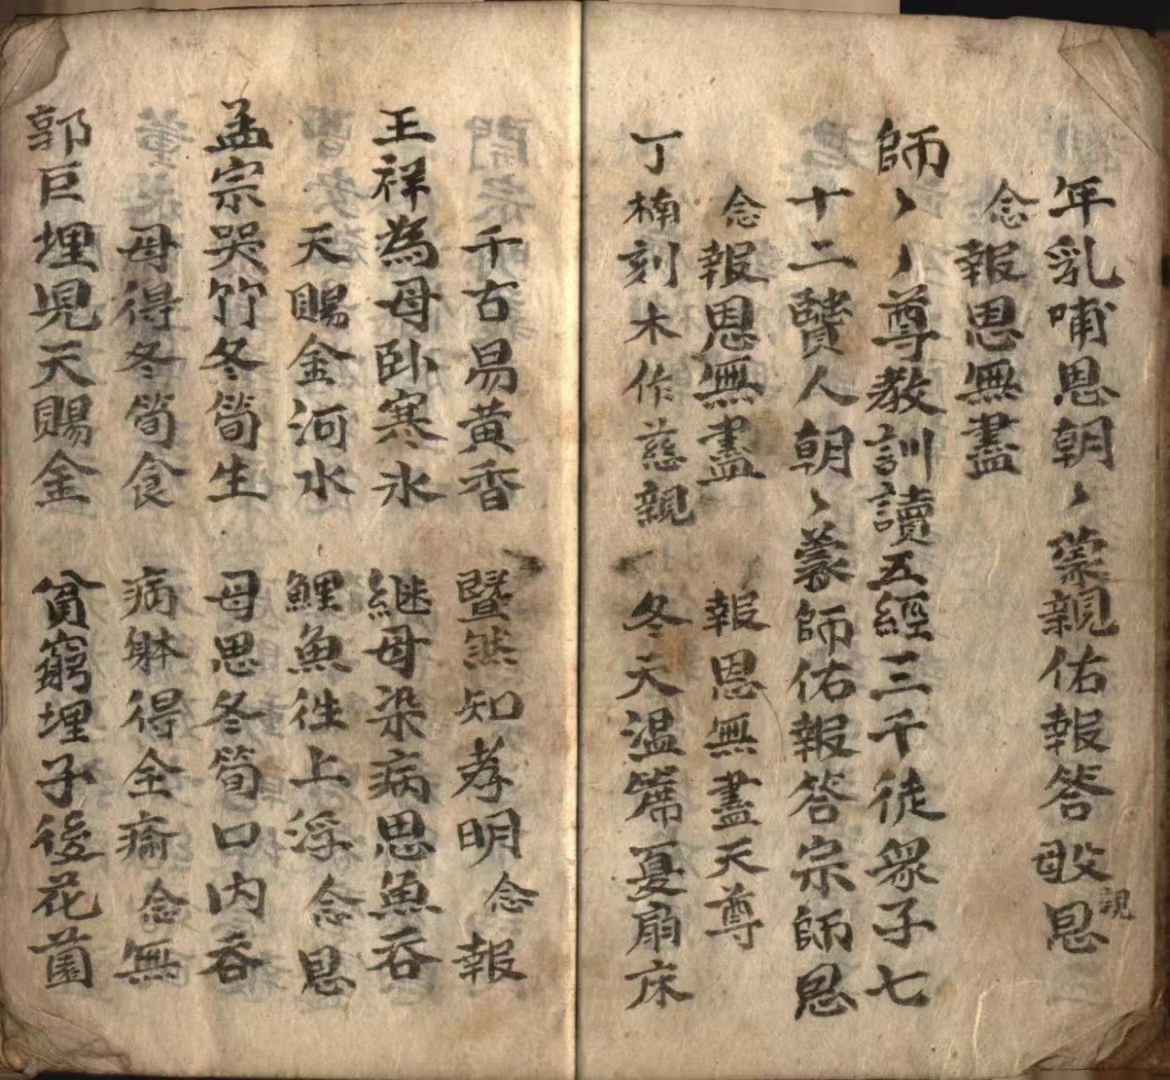 年乳哺恩朝〻蒙親佑報答母親恩
念報恩無盡
師〻〻尊教訓讀五經三千徒眾子七
十二賢人朝〻蒙師佑報答宗師恩
念報恩無盡 報恩無盡天尊
丁楠刻木作慈親 冬天溫席夏扇床
千古昜黃香 暨然知孝明念報
王祥為母卧寒氷 継母染病思魚吞
天賜金河水 鯉魚徃上浮念恩
孟宗哭竹冬筍生 母思冬筍口内吞
母得冬筍食 病躰得全痊念無
郭巨埋児天賜金 貧窮埋子後花園